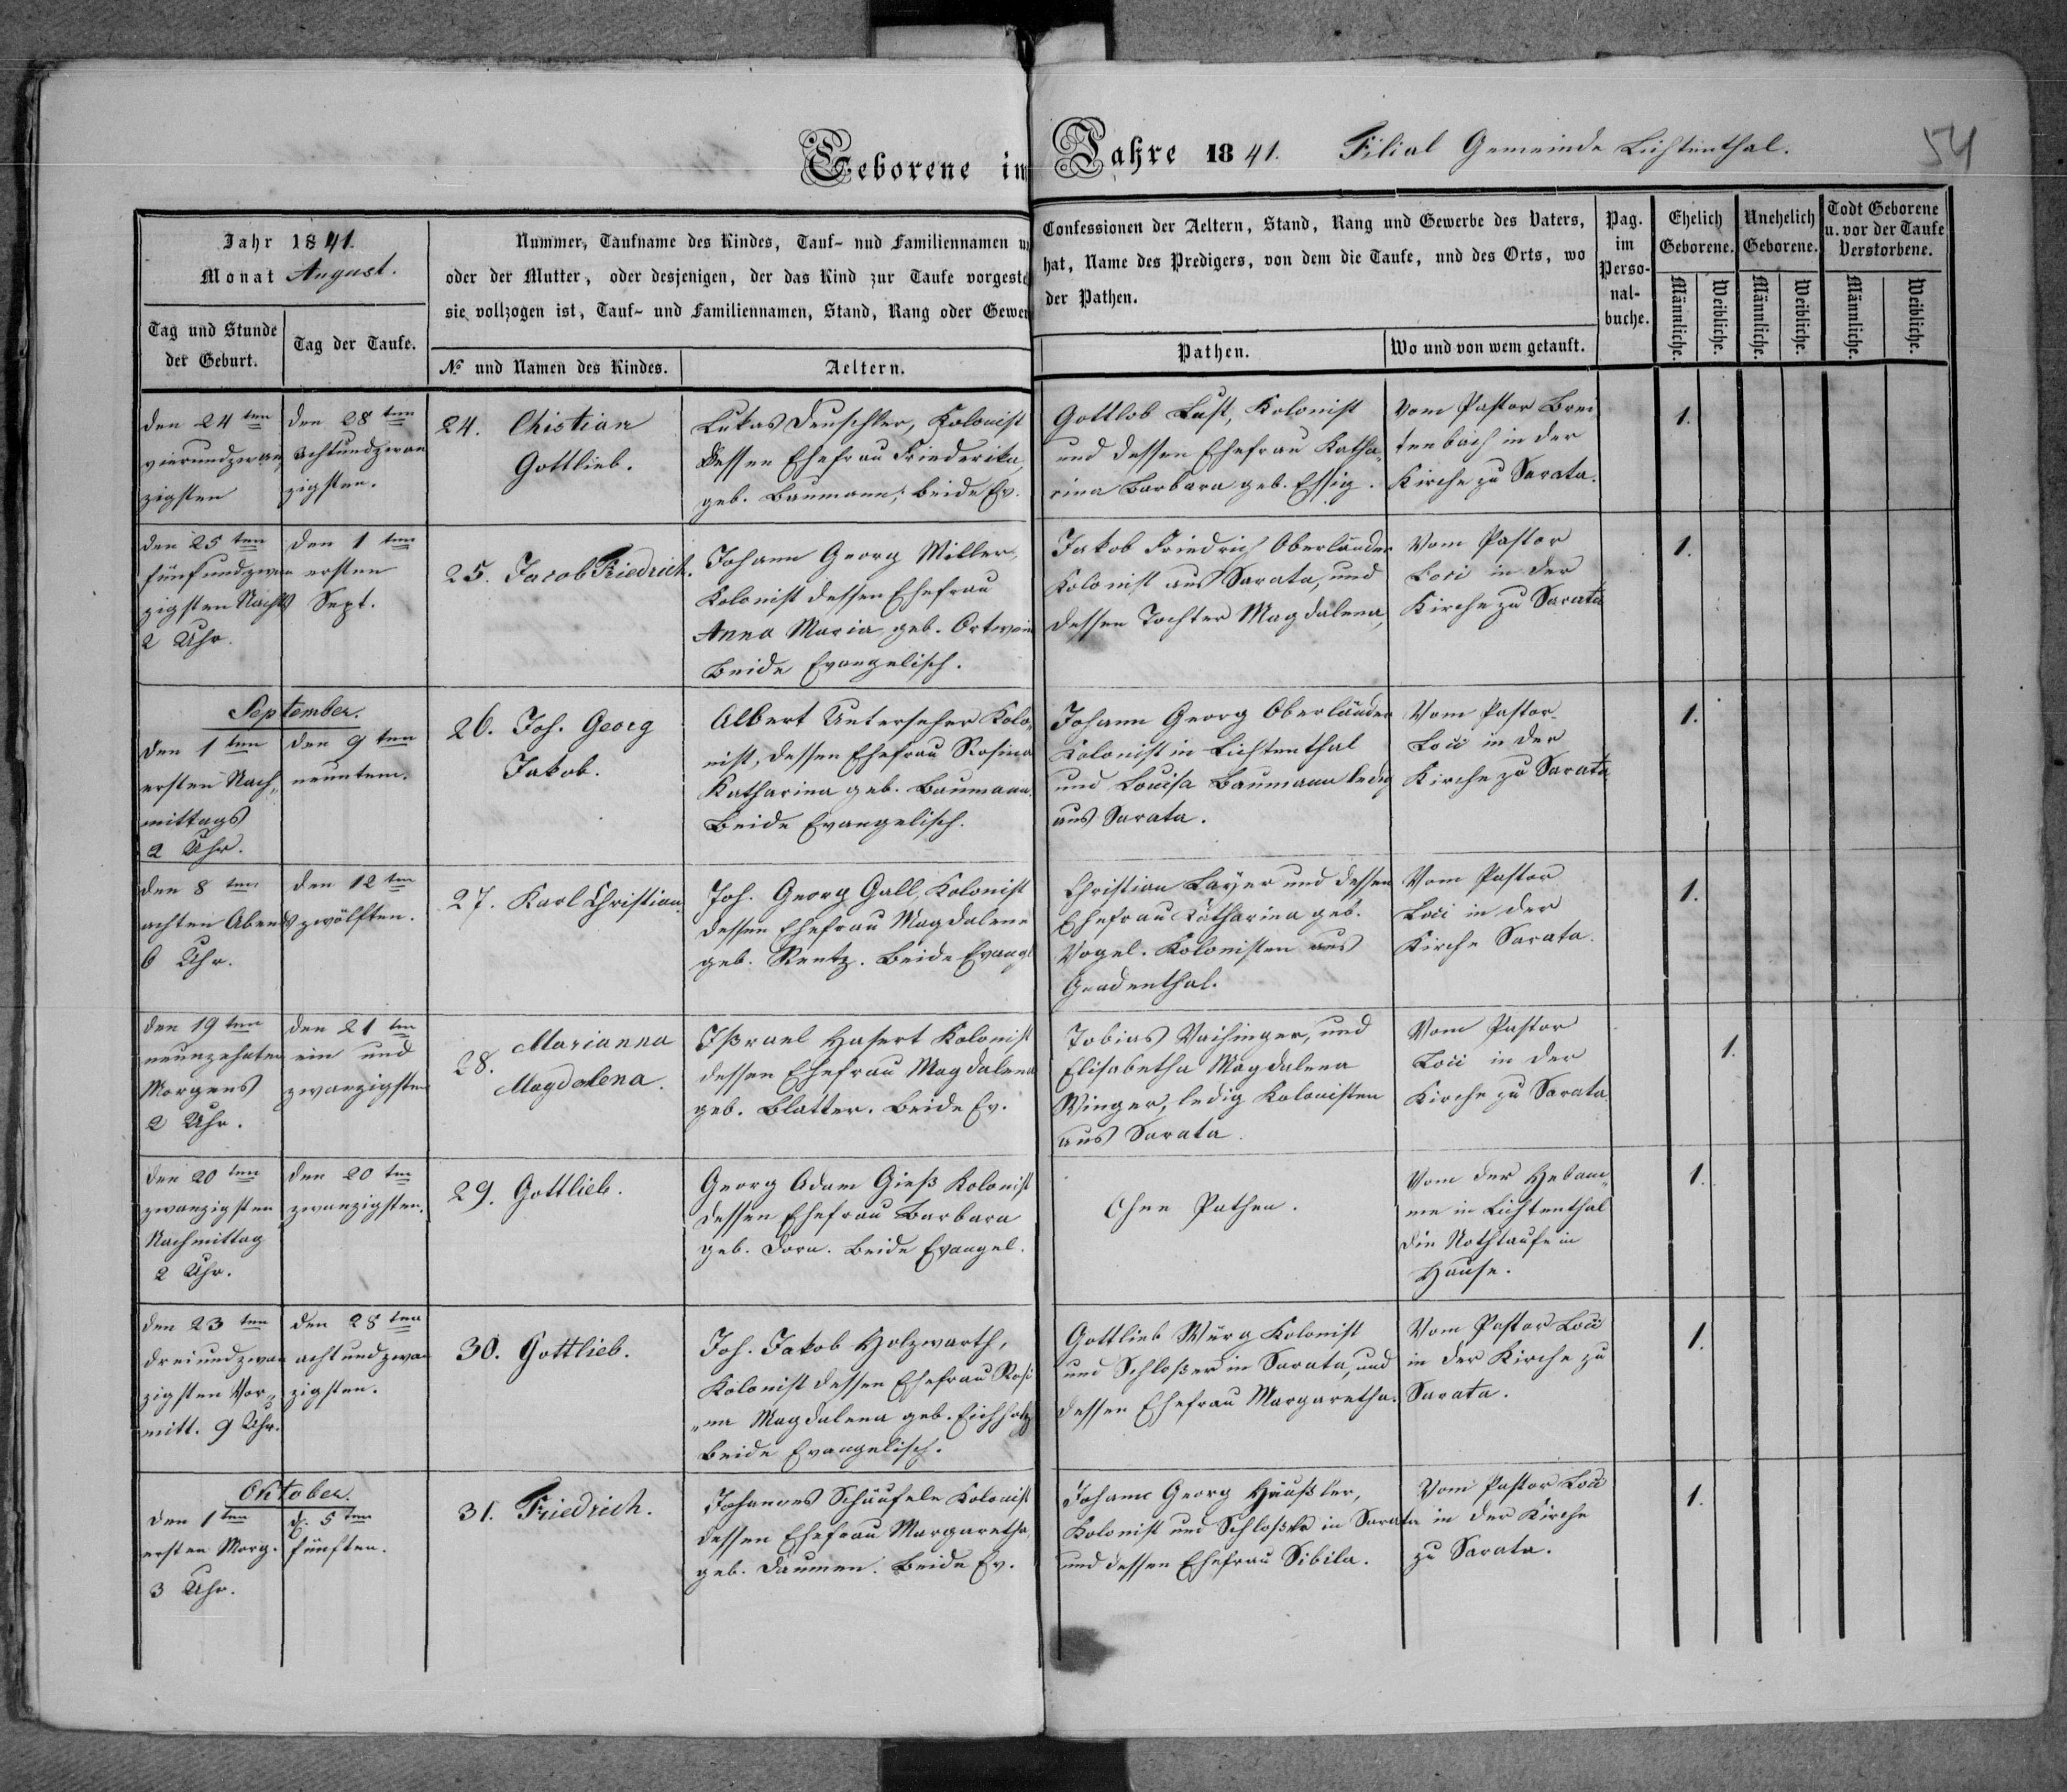 Geborene im Jahre 1841. Filial Gemeinde Lichtenthal.
54
Jahr 1841.
Monat August.
Tag und Stunde
der Geburt.
Tag der Taufe.
Nummer, Taufname des Kindes, Tauf- und Familiennamen
oder der Mutter, oder desjenigen, der das Kind zur Taufe
sie vollzogen ist, Tauf- und Familiennamen, Stand, Rang oder
No und Namen des Kindes.
Aeltern.
Confessionen der Aeltern, Stand, Rang und Gewerbe des Vaters,
hat, Name des Predigers, von dem die Taufe, und des Orts, wo
der Pathen.
Pathen.
Wo und von wem getauft.
Pag.
im
Perso-
nal-
buche.
Ehelich
Geborene.
Männliche.
Weibliche.
Unehelich
Geborene.
Männliche.
Weibliche.
Todt Geborene
u. vor der Taufe
Verstorbene.
Männliche.
Weibliche.
den 24ten
vierundzwan
zigsten
den 28ten
achtundzwan
zigsten.
24. Chistian
Gottlieb.
Lukas Deuschler, Kolonist
dessen Ehefrau Friederika,
geb. Baumann; beide Ev.
Gottlob Lust, Kolonist
und dessen Ehefrau Katha-
rina Barbara geb. Essig.
Vom Pastor Brei
tenbach in der
Kirche zu Sarata.
1.
den 25ten
fünfundzwan
zigsten Nachts
2 Uhr.
den 1ten
ersten
Sept.
25. Jacob Friedrich.
Johann Georg Miller,
Kolonist dessen Ehefrau
Anna Maria, geb. Ortwein
Beide Evangelisch.
Jakob Friedrich Oberländer
Kolonist aus Sarata, und
dessen Tochter Magdalena,
Vom Pastor
Loci in der
Kirche zu Sarata
1.
September.
den 1ten
ersten Nach-
mittags
2 Uhr.
den 9ten
neuntem.
26. Joh. Georg
Jakob.
Albert Unterseher Kolo-
nist, dessen Ehefrau Rosina
Katharina geb. Baumann.
Beide Evangelisch.
Johann Georg Oberländer
Kolonist in Lichtenthal
und Louisa Baumann ledig
aus Sarata.
Vom Pastor
Loci in der
Kirche zu Sarata
1.
den 8ten
achten Abends
6 Uhr.
den 12ten
zwölften.
27. Karl Christian.
Joh. Georg Gall, Kolonist
dessen Ehefrau Magdalena
geb. Rentz. Beide Evangl
Christian Layer und dessen
Ehefrau Katharina geb.
Vogel. Kolonisten aus
Gnadenthal.
Vom Pastor
Loci in der
Kirche Sarata.
1.
den 19ten
neunzehnten
Morgens
2 Uhr.
den 21ten
ein und
zwanzigsten
28. Marianna
Magdalena.
Ißrael Hasert Kolonist
dessen Ehefrau Magdalena
geb. Blatter. Beide Ev.
Tobias Vaihinger, und
Elisabetha Magdalena
Winger, ledig Kolonisten
aus Sarata.
Vom Pastor
Loci in der
Kirche zu Sarata
1.
den 20ten
zwanzigsten
Nachmittag
2 Uhr.
den 20ten
zwanzigsten.
29. Gottlieb.
Georg Adam Gieß Kolonist
dessen Ehefrau Barbara
geb. Dorn. Beide Evangel.
Ohne Pathen.
Vom der Hebam-
me in Lichtenthal
die Nothtaufe in
Hause.
1.
den 23ten
dreiundzwan
zigsten Vor-
mitt. 9 Uhr.
den 28ten
achtundzwan
zigsten.
30. Gottlieb.
Joh. Jakob Holzwarth,
Kolonist dessen Ehefrau Rosi
na Magdalena geb. Eichholz
Beide Evangelisch.
Gottlieb Würg Kolonist
und Schloßer in Sarata, und
dessen Ehefrau Margaretha.
Vom Pastor Loci
in der Kirche zu
Sarata.
1.
Oktober.
den 1ten
ersten Morg.
3 Uhr.
d. 5ten
fünften.
31. Friedrich.
Johannes Schäufele Kolonist
dessen Ehefrau Margaretha
geb. Daumen. Beide Ev.
Johann Georg Häußler,
Kolonist und Schloßer in Sarata
und dessen Ehefrau Sibila.
Vom Pastor Loci
in der Kirche
zu Sarata.
1.